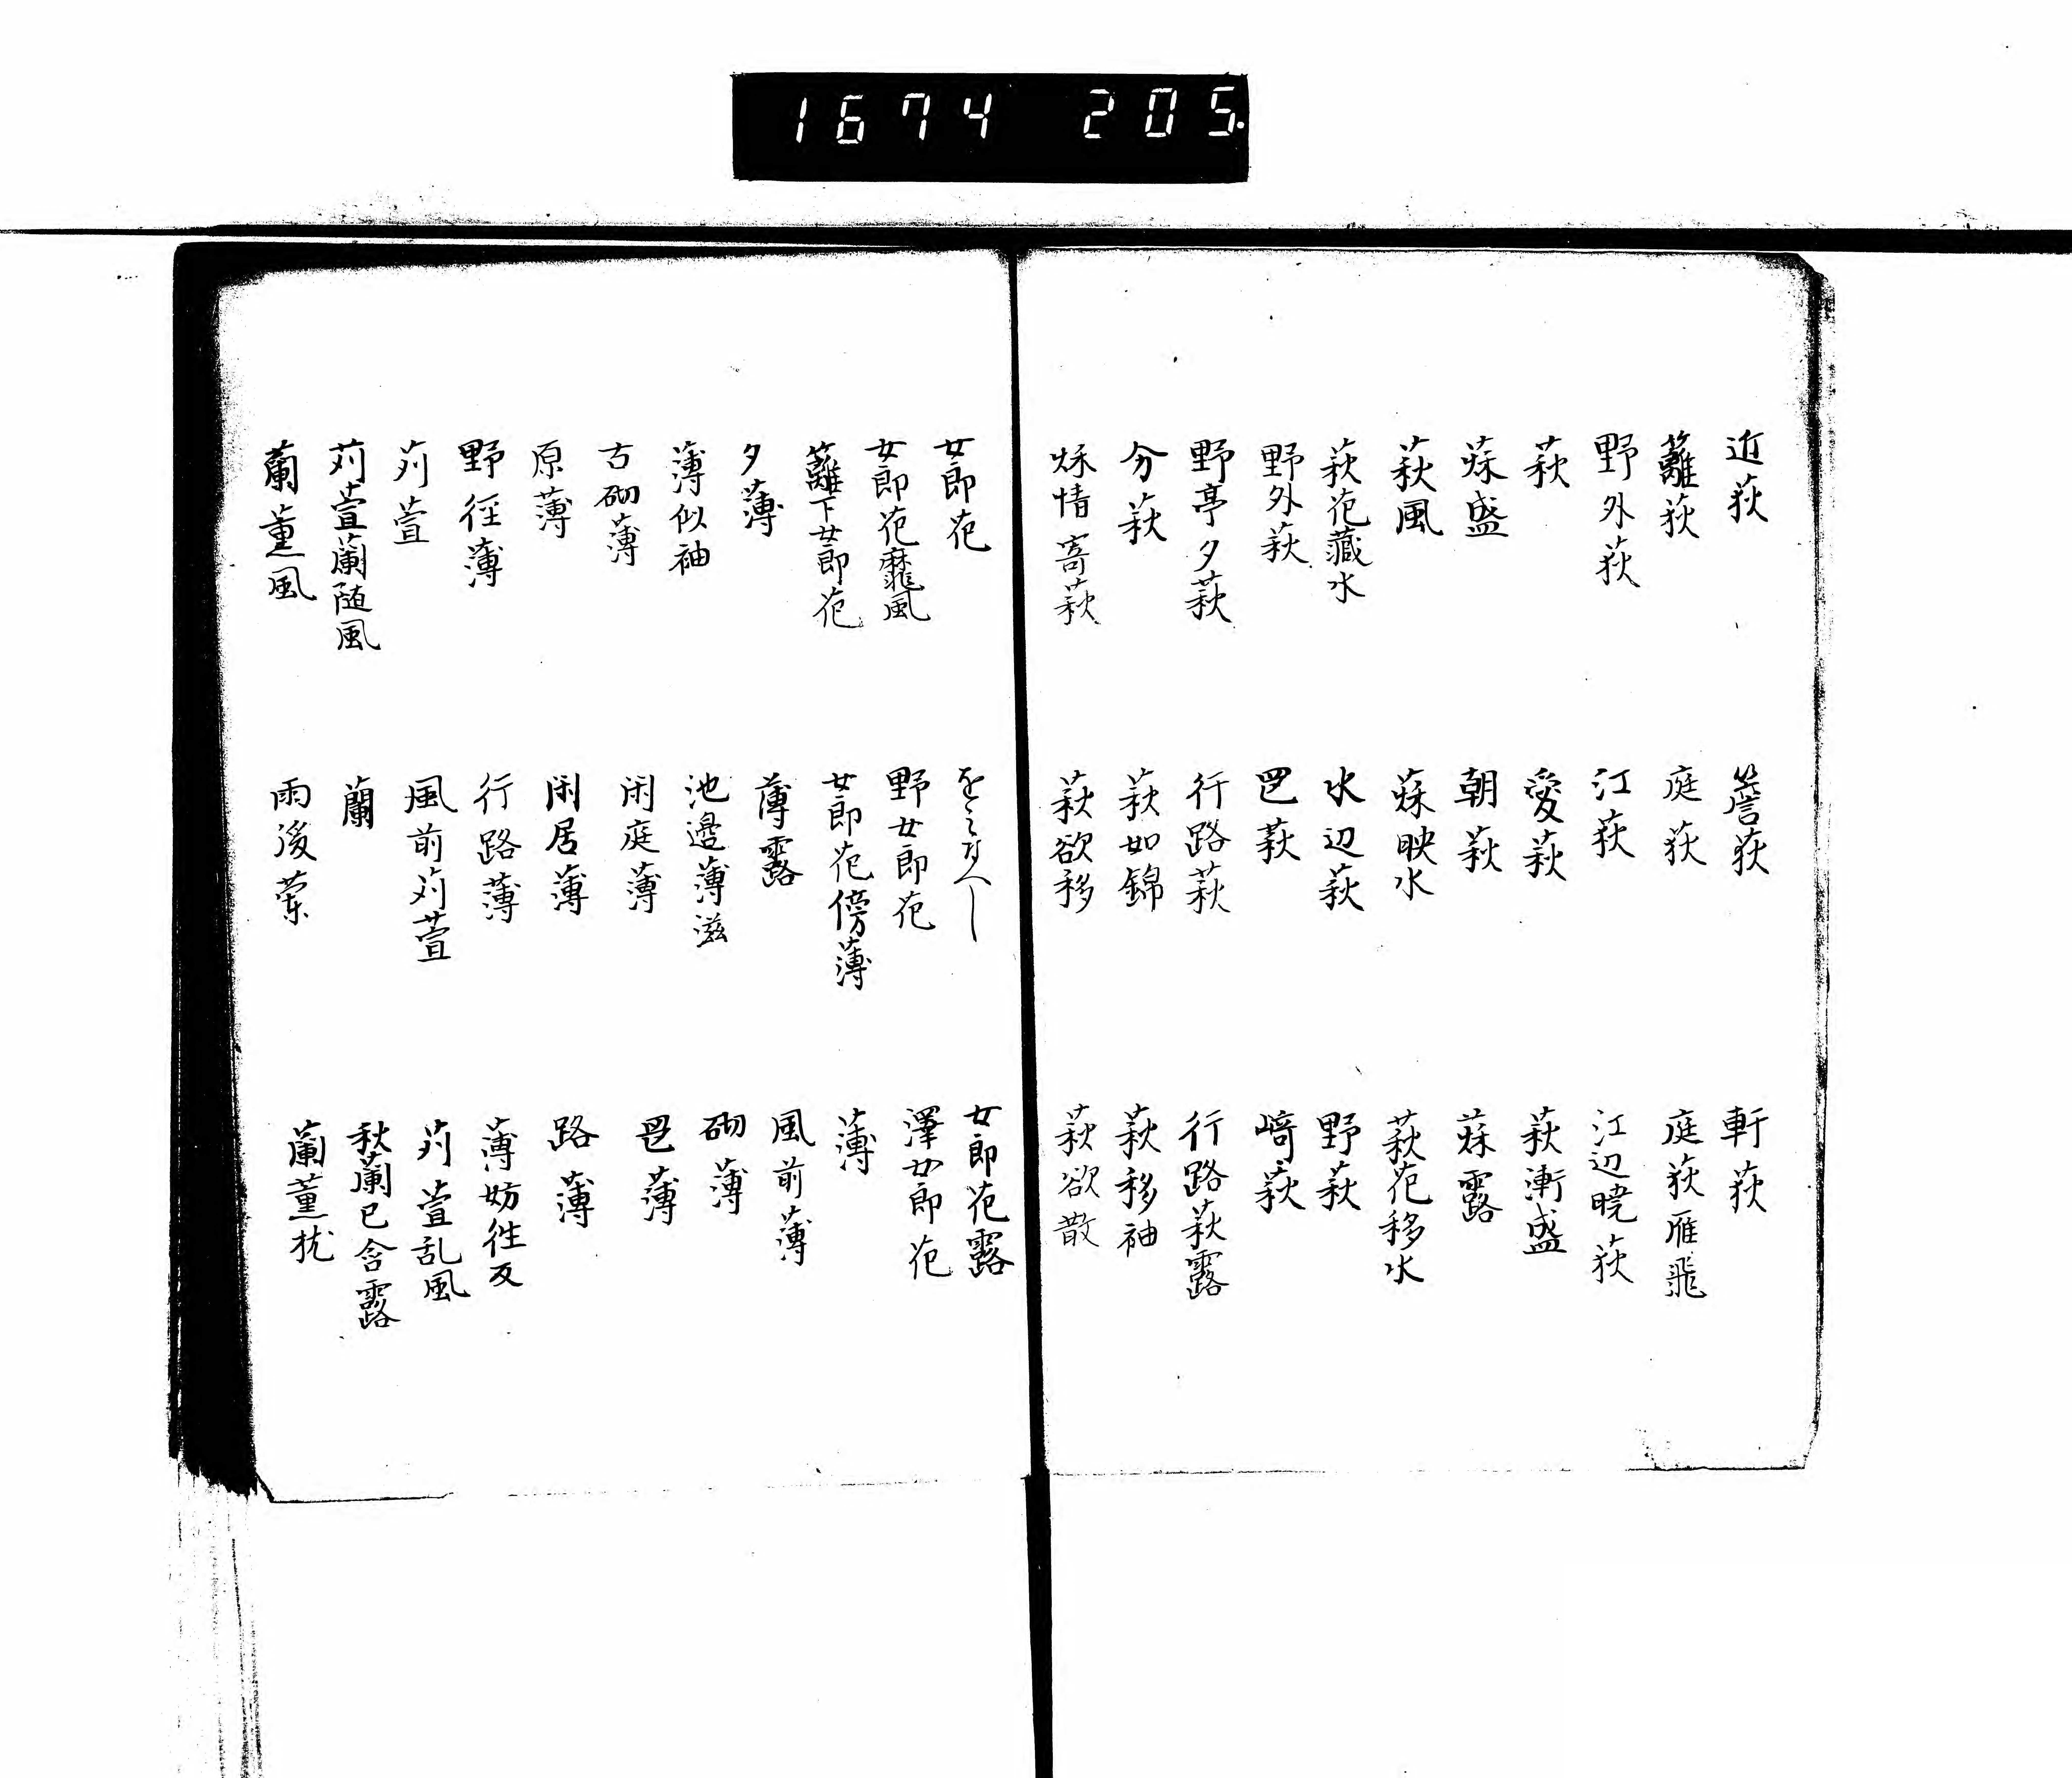 1674 205.
近荻 簷荻 軒荻
籬荻 庭荻 庭荻雁飛
野外荻 江荻 江辺暁荻
萩 愛萩 萩漸盛
萩盛 朝萩 萩露
萩風 萩映水 萩花移水
萩花蔵水 水辺萩 野萩
野外萩 邑萩 崎萩
野亭夕萩 行路萩 行路萩露
分萩 萩如錦 萩移袖
秋情寄萩 萩欲移 萩欲散
女郎花 をミなへし 女郎花露
女郎花靡風 野女郎花 澤女郎花
籬下女郎花 女郎花傍薄 薄
夕薄 薄露 風前薄
薄似袖 池邊薄滋 砌薄
古砌薄 閑庭薄 邑薄
原薄 閑居薄 路薄
野径薄 行路薄 薄妨往反
苅萱 風前苅萱 苅萱乱風
苅萱蘭随風 蘭 秋蘭已含露
蘭薫風 雨後蘭 蘭薫枕